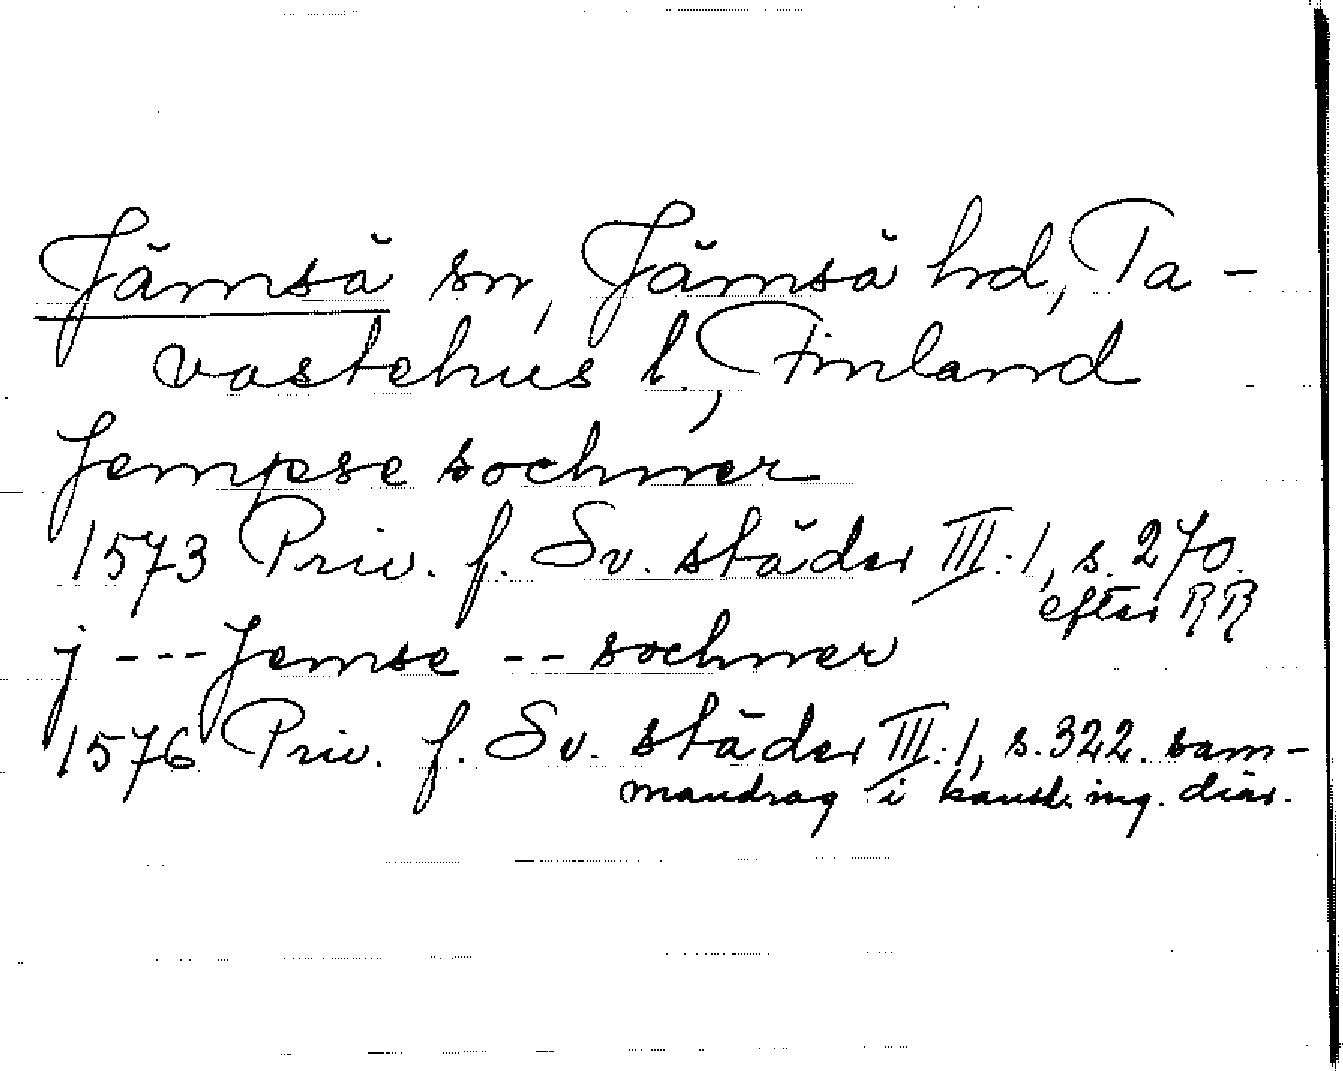 Jämsä sn, Jämsä hd, Ta-
vastehus l., Finland
Jempse sochner
1573 Priv. f. Sv. städer III:1, s. 270.
efter RR
j --- Jemse -- sochner
1576 Priv. f. Sv. städer III:1, s. 322. sam-
mandrag i kansl. ing. diar.